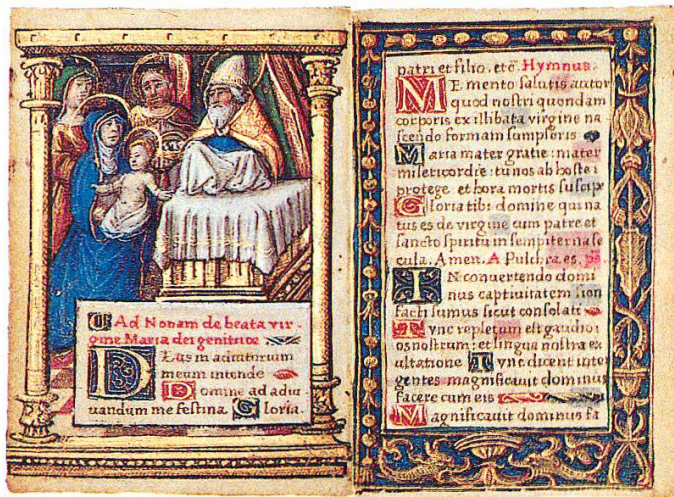 Ad Nonam de beata vir-
gine Maria dei genitrice
Deus in adiutorium
meum intende
Domine ad adiu
uandum me festina Gloria.
patri et filio. et õ. Hymnus.
Memento salutis autor
quod nostri quondam
corporis ex illibata virgine na
scendo formam sumpseris
Maria mater gratie: mater
misericordie: tu nos ab hoste
protege et hora mortis suscipe
Gloria tibi domine qui na
tus es de virgine cum patre et
sancto spiritu in sempiterna se
cula. Amen. A Pulchra es. ps.
IN conuertendo domi
nus captiuitatem sion
facti sumus sicut consolati
Tunc repletum est gaudio
os nostrum: et lingua nostra ex
ultatione Tunc dicent inter
gentes magnificauit dominus
facere cum eis
Magnificauit dominus fa